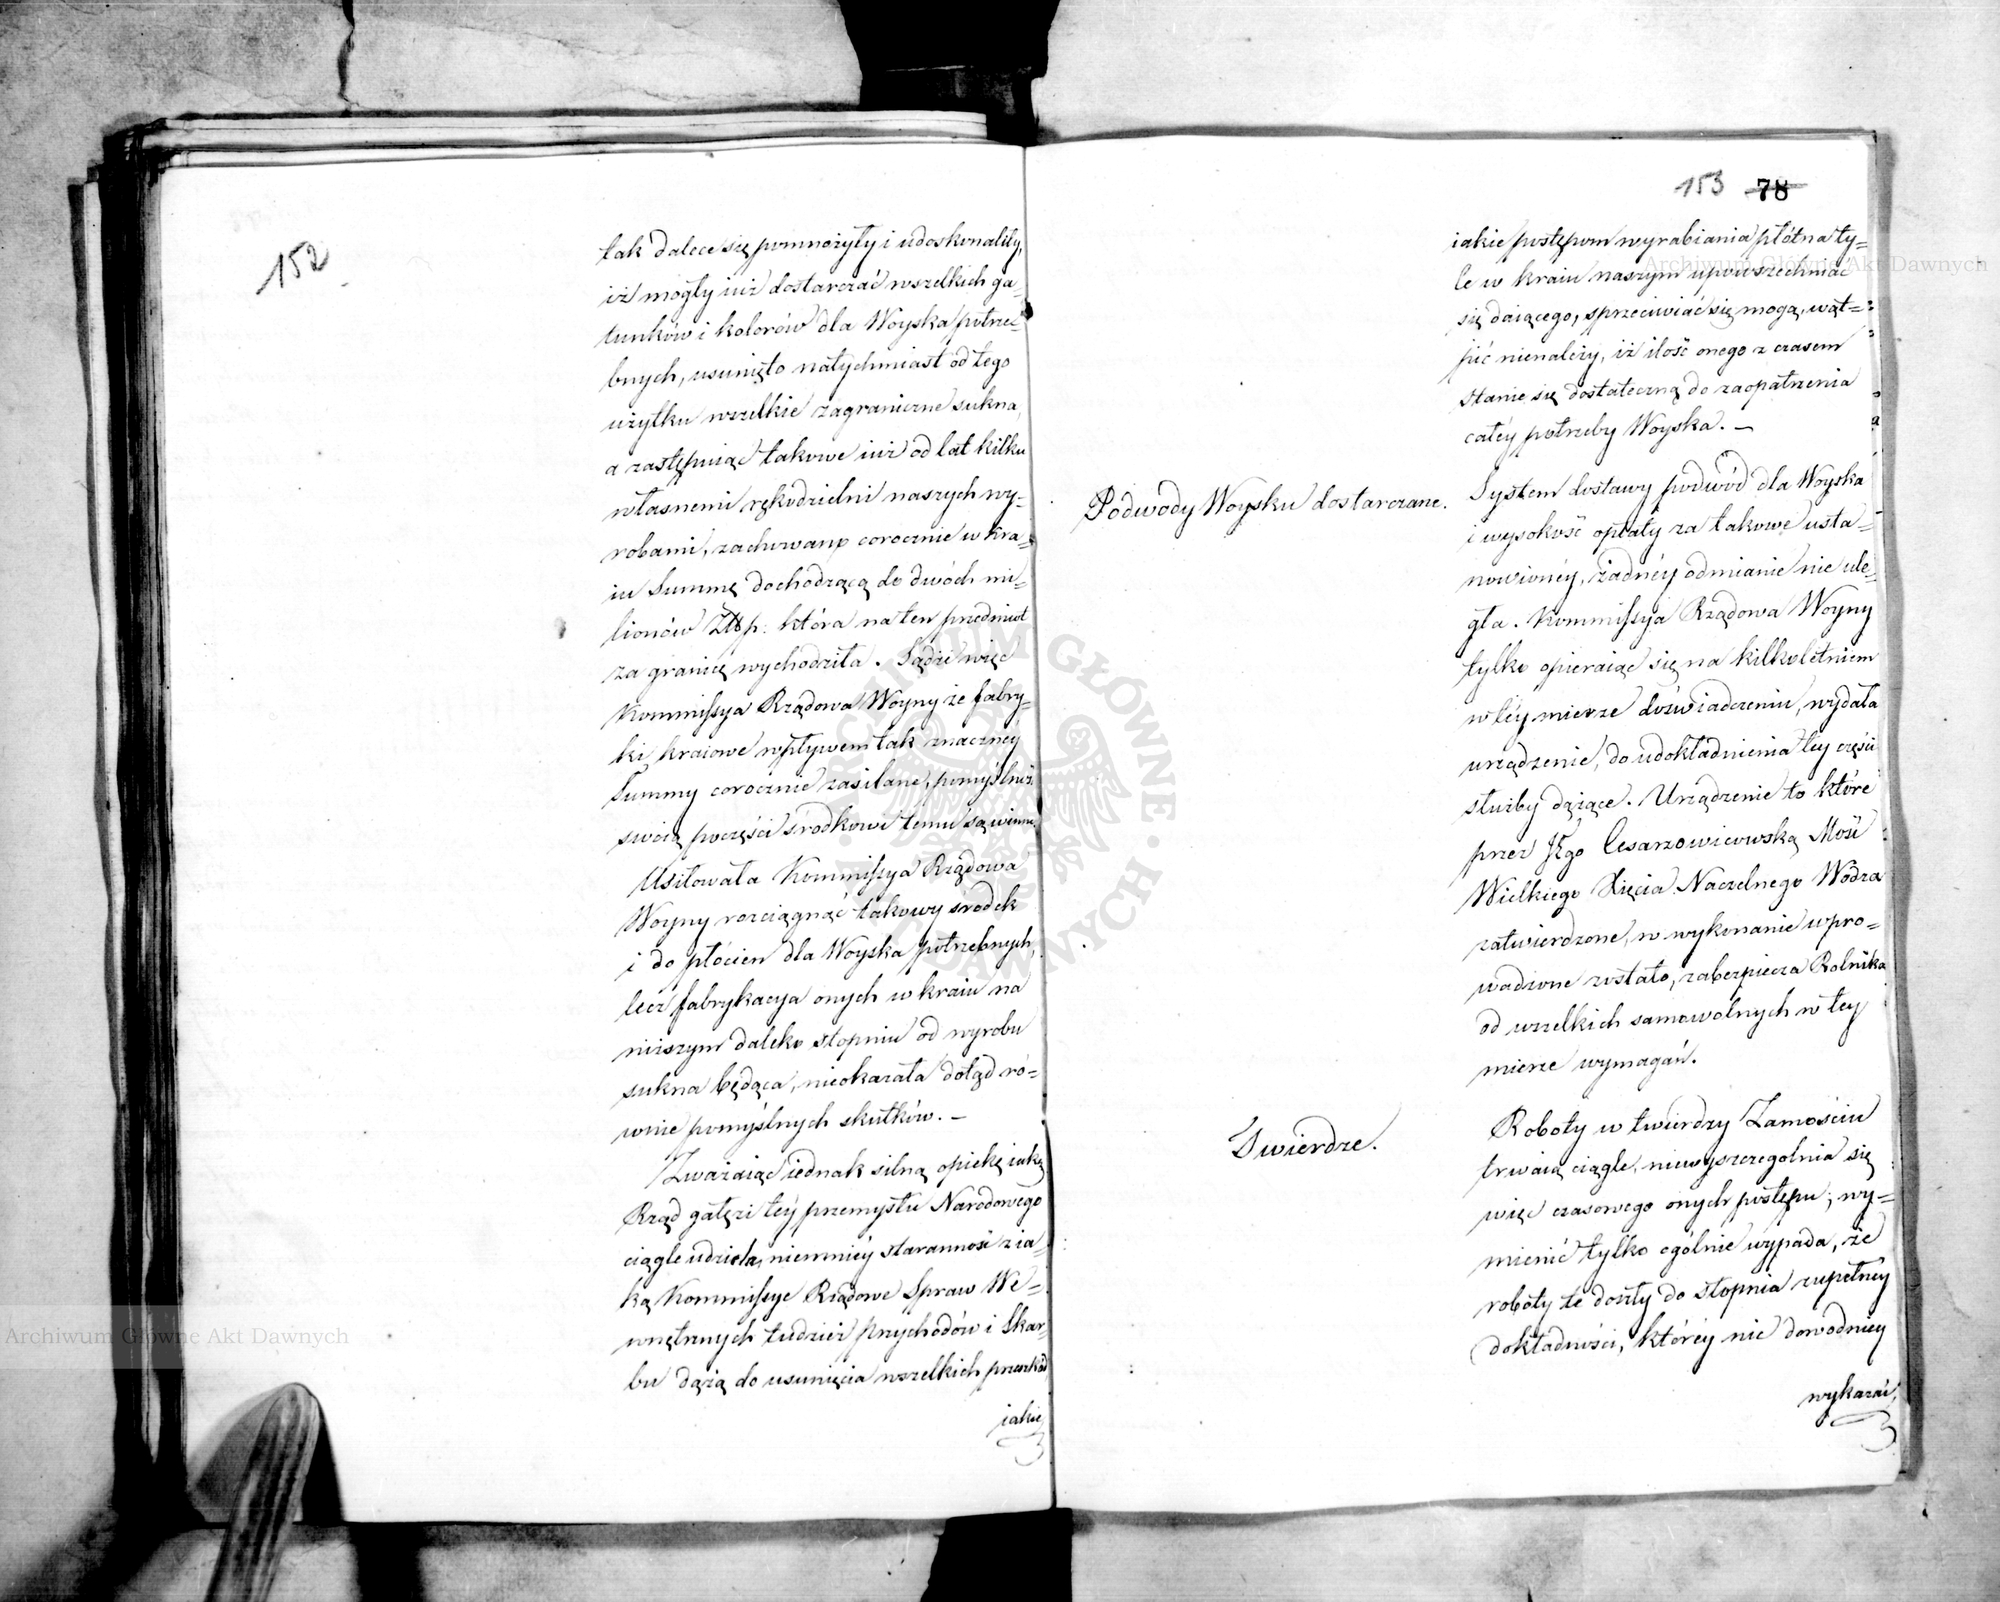 152
tak dalece się pomnożyły i udoskonaliły,
iż mogły iuż dostarczać wszelkich ga-
tunków i kolorów dla Woyska potrze-
bnych, usunięto natychmiast od tego
użytku wszelkie zagraniczne sukna,
a zastępuiąc takowe iuż od lat kilku
własnemi rękodzielni naszych wy-
robami, zachowano corocznie w kra-
iu Summę dochodzącą do dwóch mi-
lionów Złłp: która na ten przedmiot
za granicę wychodziła. Sądzi więc
Kommissya Rządowa Woyny że fabry-
ki kraiowe wpływem tak znaczney
Summy corocznie zasilane, pomyślność
swoią poczęści środkowi temu są winne.
Usiłowała Kommissya Rządowa
Woyny rozciągnąć takowy srodek
i do płócien dla Woyska potrzebnych,
lecz fabrykacya onych w kraiu na
niższym daleko stopniu od wyrobu
sukna będąca, nieokazała dotąd ró-
wnie pomyślnych skutków. —
Zważaiąc iednak silną opiekę iaką
Rząd gałęzi téy przemysłu Narodowego
ciągle udziela, niemniéy staranność z ia-
ką Kommissye Rządowe Spraw We-
wnętrznych tudzież Przychodów i Skar-
bu dążą do usunięcia wszelkich przeszkód
iakie
153 78
iakie postępom wyrabiania płótna ty-
le w kraiu naszym upowszechniać
się daiącego, sprzeciwiać się mogą, wąt-
pić nienależy, iż ilość onego z czasem
stanie się dostateczną do zaopatrzenia
całéy potrzeby Woyska. —
Podwody Woysku dostarczane.
System dostawy podwód dla Woyska
i wysokość opłaty za takowe usta-
nowionéy, żadnéy odmianie nie ule-
gła. Kommissya Rządowa Woyny
tylko opieraiąc się na kilkoletniem
w téy mierze doświadczeniu, wydała
urządzenie, do udokładnienia tey części
służby dążące. Urządzenie to które
przez Jego Cesarzowicowską Mość
Wielkiego Xięcia Naczelnego Wodza
zatwierdzone, w wykonanie wpro-
wadzone zostało, zabezpiecza Rolnika
od wszelkich samowolnych w tey
mierze wymagań.
Twierdze.
Roboty w twierdzy Zamościu
trwaią ciągle, niewyszczególnia się
więc czasowego onych postępu; wy-
mienić tylko ogólnie wypada, że
roboty te doszły do stopnia zupełnéy
dokładności, któréy nic dowodniey
wykazać,
Archiwum Główne Akt Dawnych
Archiwum Główne Akt Dawnych
ARCHIWUM GŁÓWNE AKT DAWNYCH